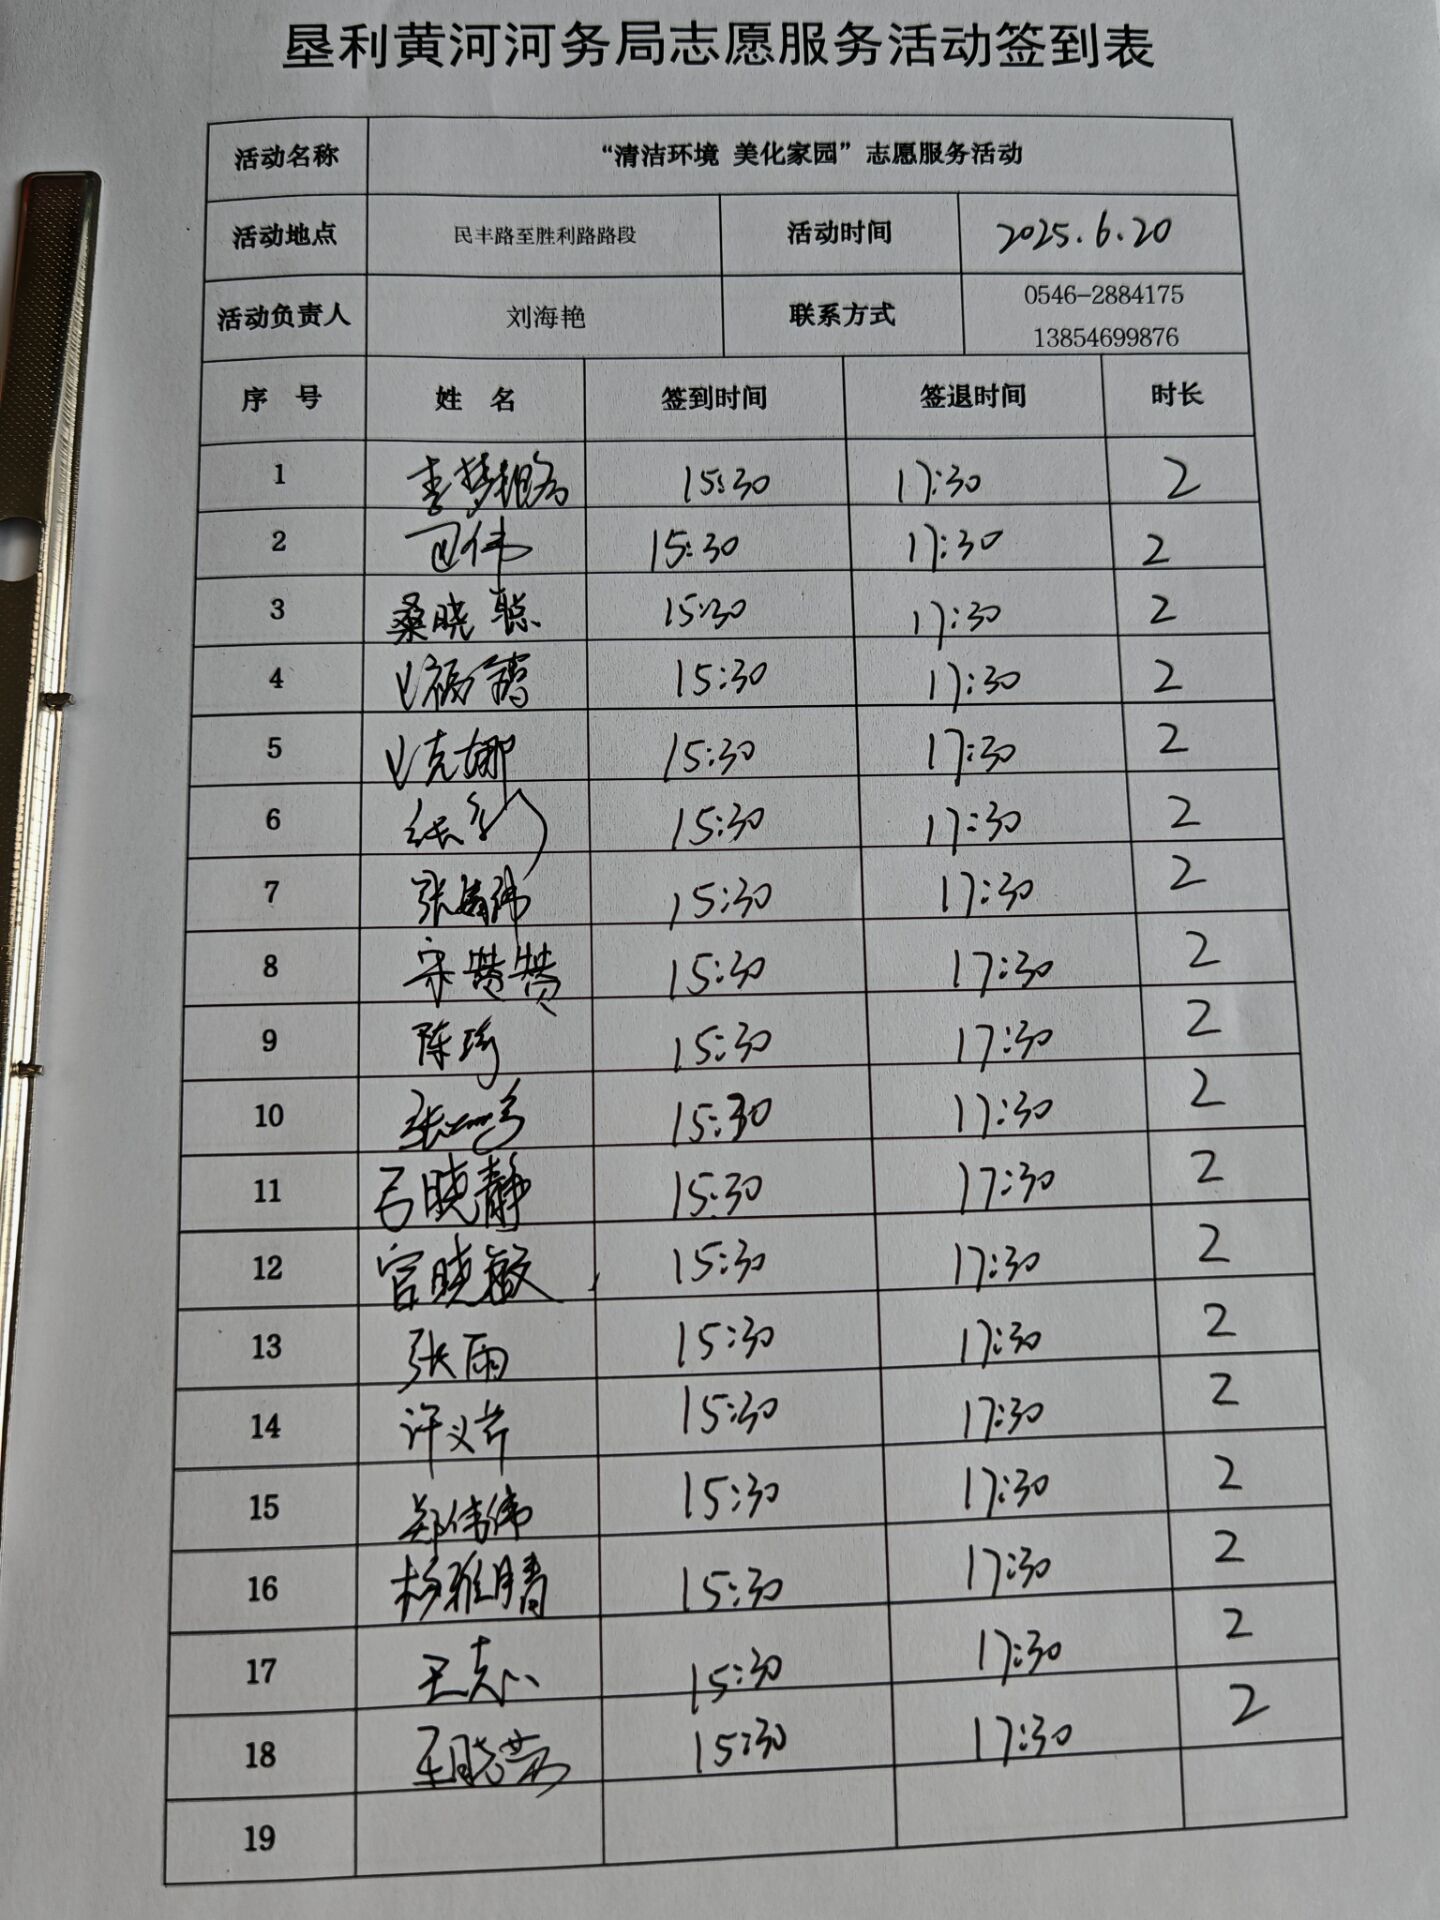 垦利黄河河务局志愿服务活动签到表
活动名称 “清洁环境 美化家园”志愿服务活动
活动地点 民丰路至胜利路路段 活动时间 2025.6.20
活动负责人 刘海艳 联系方式 0546-2884175
13854699876
序 号 姓 名 签到时间 签退时间 时长
1 15:30 17:30 2
2 15:30 17:30 2
3 桑晓聪 15:30 17:30 2
4 15:30 17:30 2
5 15:30 17:30 2
6 15:30 17:30 2
7 15:30 17:30 2
8 宋赞赞 15:30 17:30 2
9 陈琦 15:30 17:30 2
10 15:30 17:30 2
11 15:30 17:30 2
12 宫晓敏 15:30 17:30 2
13 张雨 15:30 17:30 2
14 15:30 17:30 2
15 郑伟伟 15:30 17:30 2
16 杨雅晴 15:30 17:30 2
17 15:30 17:30 2
18 15:30 17:30 2
19